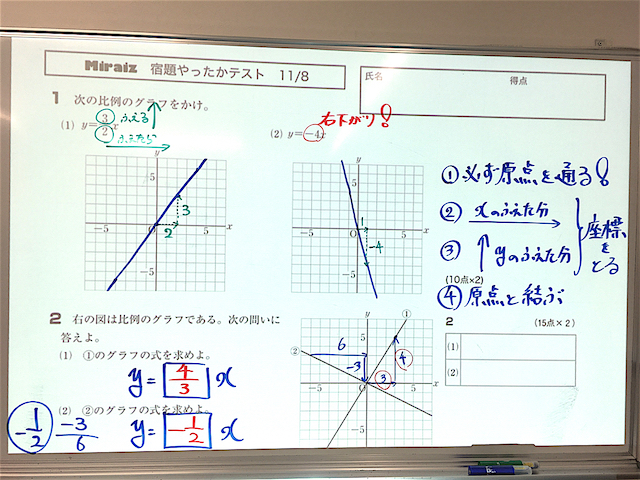 Miraiz 宿題やったかテスト 11/8
氏名
得点
1 次の比例のグラフをかけ。
(1) y=3/2x
ふえる
ふえたら
(2) y=-4x
右下がり!
y
5
-5
O
5
x
-5
3
2
y
5
-5
O
5
x
-5
1
-4
①必ず原点を通る!
② xのふえた分
③ yのふえた分
座標をとる
(10点×2)
④原点と結ぶ
2 右の図は比例のグラフである。次の問いに
答えよ。
(1) ①のグラフの式を求めよ。
y=4/3x
(2) ②のグラフの式を求めよ。
y=-1/2x
-1/2
-3/6
y
①
②
5
6
-3
4
3
-5
O
5
x
-5
2
(15点×2)
(1)
(2)